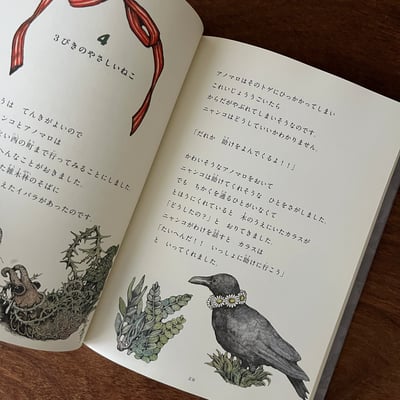 4
3びきのやさしいねこ
うは てんきがよいので
ニャンコとアノマロは
い南の町まで行ってみることにしました
へんなことがおきました
た雑木林のそばに
えたイバラがあったのです
アノマロはそのトゲにひっかかってしまい
これいじょううごいたら
からだがやぶれてしまいそうなのです
ニャンコはどうしていいかわかりません
「だれか 助けをよんでくるよ！！」
かわいそうなアノマロをおいて
ニャンコは助けてくれそうな ひとをさがしました
でも ちかくを通るひとがいなくて
とほうにくれていると 木のうえにいたカラスが
「どうしたの？」と おりてきました
ニャンコがわけを話すと カラスは
「たいへんだ！！ いっしょに助けに行こう」
と いってくれました